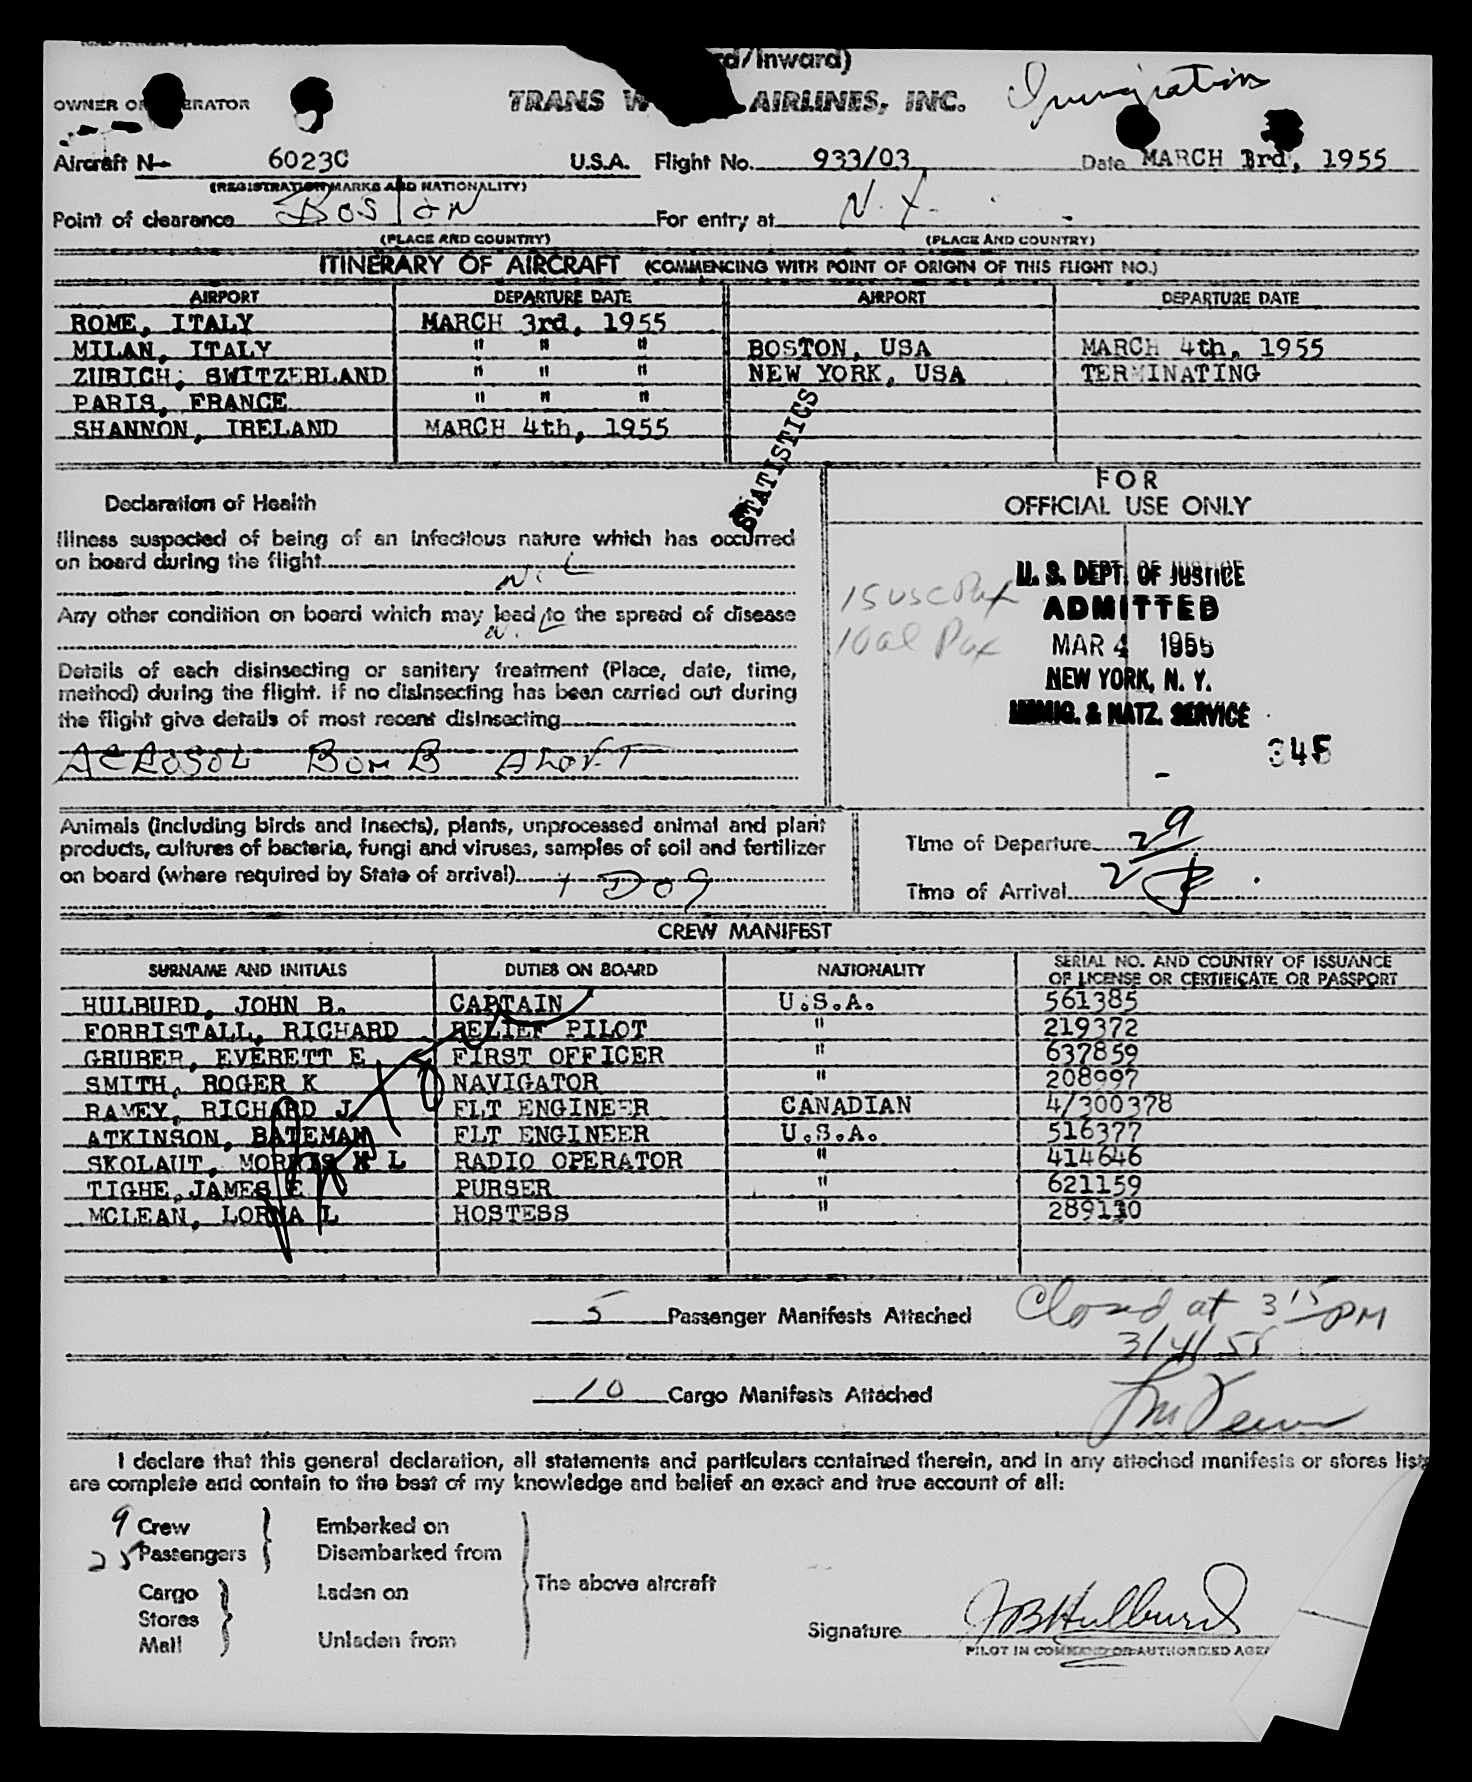 rd/Inward)
OWNER O ERATOR
TRANS W AIRLINES, INC.
Immigration
Aircraft N- 6023C U.S.A. Flight No. 933/03 Date MARCH 3rd, 1955
(REGISTRATION MARKS AND NATIONALITY)
Point of clearance BOSTON For entry at N.Y.
(PLACE AND COUNTRY) (PLACE AND COUNTRY)
ITINERARY OF AIRCRAFT (COMMENCING WITH POINT OF ORIGIN OF THIS FLIGHT NO.)
AIRPORT DEPARTURE DATE AIRPORT DEPARTURE DATE
ROME, ITALY MARCH 3rd, 1955
MILAN, ITALY " " " BOSTON, USA MARCH 4th, 1955
ZURICH, SWITZERLAND " " " NEW YORK, USA TERMINATING
PARIS, FRANCE " " "
SHANNON, IRELAND MARCH 4th, 1955
STATISTICS
Declaration of Health
Illness suspected of being of an infectious nature which has occurred
on board during the flight
NiL
Any other condition on board which may lead to the spread of disease
NiL
Details of each disinsecting or sanitary treatment (Place, date, time,
method) during the flight. If no disinsecting has been carried out during
the flight give details of most recent disinsecting
AEROSOL BOMB ALOFT
FOR
OFFICIAL USE ONLY
15 USC Pax
10 al Pax
U. S. DEPT. OF JUSTICE
ADMITTED
MAR 4 1955
NEW YORK, N. Y.
IMMIG. & NATZ. SERVICE
345
Animals (including birds and insects), plants, unprocessed animal and plant
products, cultures of bacteria, fungi and viruses, samples of soil and fertilizer
on board (where required by State of arrival) 1 DOG
Time of Departure
Time of Arrival
CREW MANIFEST
SURNAME AND INITIALS DUTIES ON BOARD NATIONALITY SERIAL NO. AND COUNTRY OF ISSUANCE OF LICENSE OR CERTIFICATE OR PASSPORT
HULBURD, JOHN B. CAPTAIN U.S.A. 561385
FORRISTALL, RICHARD RELIEF PILOT " 219372
GRUBER, EVERETT E FIRST OFFICER " 637859
SMITH, ROGER K NAVIGATOR " 208997
RAMEY, RICHARD J FLT ENGINEER CANADIAN 4/300378
ATKINSON, BATEMAN FLT ENGINEER U.S.A. 516377
SKOLAUT, MORRIS L RADIO OPERATOR " 414646
TIGHE, JAMES E PURSER " 621159
MCLEAN, LORNA L HOSTESS " 289130
5 Passenger Manifests Attached
Closed at 3 15 PM
3/4/55
10 Cargo Manifests Attached
I declare that this general declaration, all statements and particulars contained therein, and in any attached manifests or stores lists
are complete and contain to the best of my knowledge and belief an exact and true account of all:
9 Crew Embarked on
25 Passengers Disembarked from
Cargo Laden on
The above aircraft
Stores
Mail Unladen from
Signature JB Hulburd
PILOT IN COMMAND OR AUTHORIZED AGE